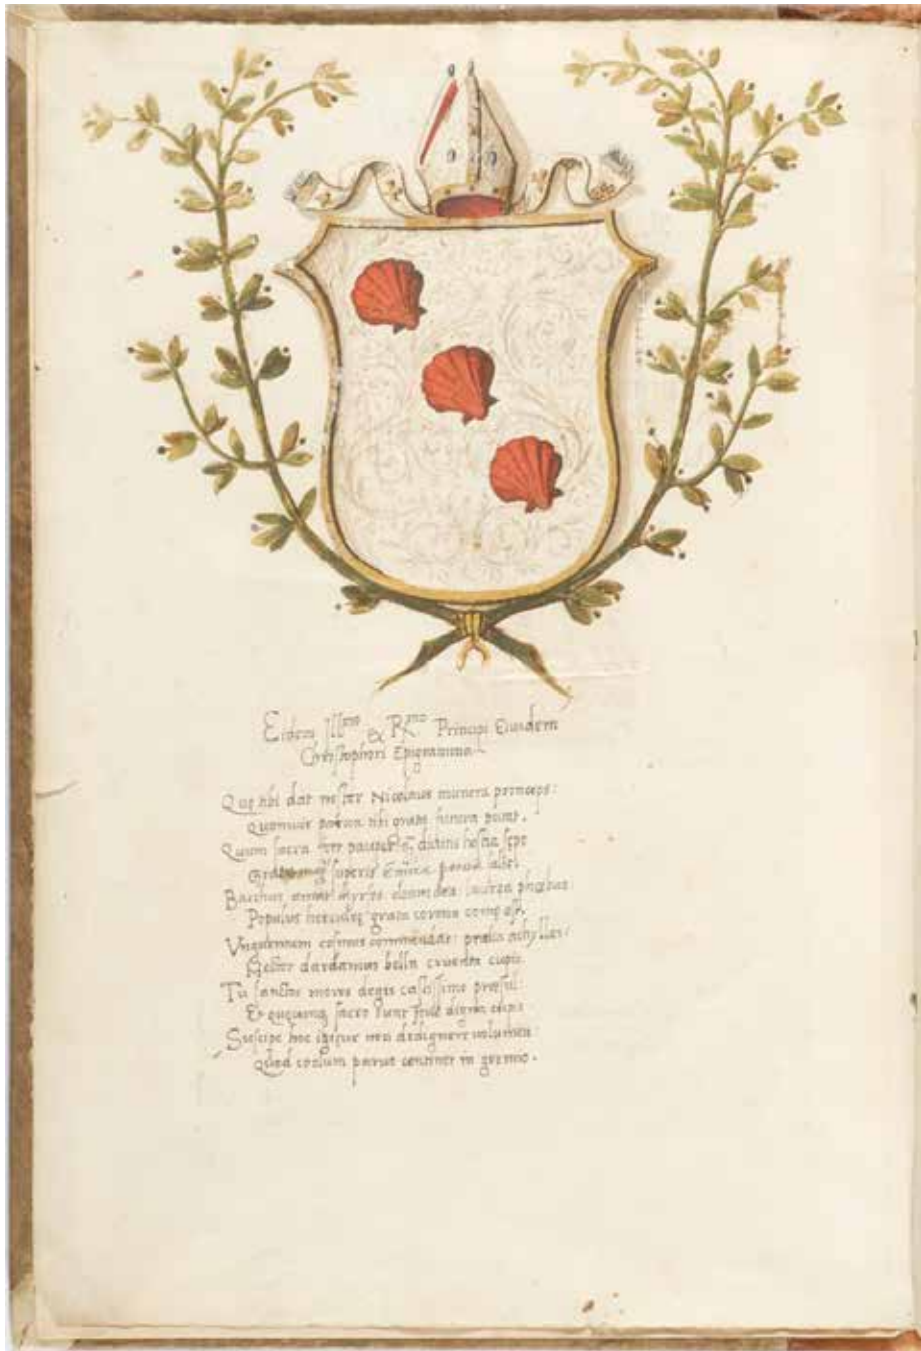 Eidem Ill^mo & R^mo Principi Eiusdem
Christophori Epigramma
Que tibi dat noster Nicolaus munera princeps:
Quamuis parua tibi grata
Quum sacra fert pauper datiuis hostia sepe
superis mica parua salis
Bacchus amat thyrsos: laurea phoebus:
Populus herculeo grata corona comis est.
Vnguentum cosmus commendat: prelia achylles:
Hector dardanius bella cruenta cupit.
Tu sanctos mores degis castissime presul:
Et quecunque sacro sunt digna cupis
Suscipe hoc igitur nec dedignere uolumen:
Quod coelum paruo continet in gremio.